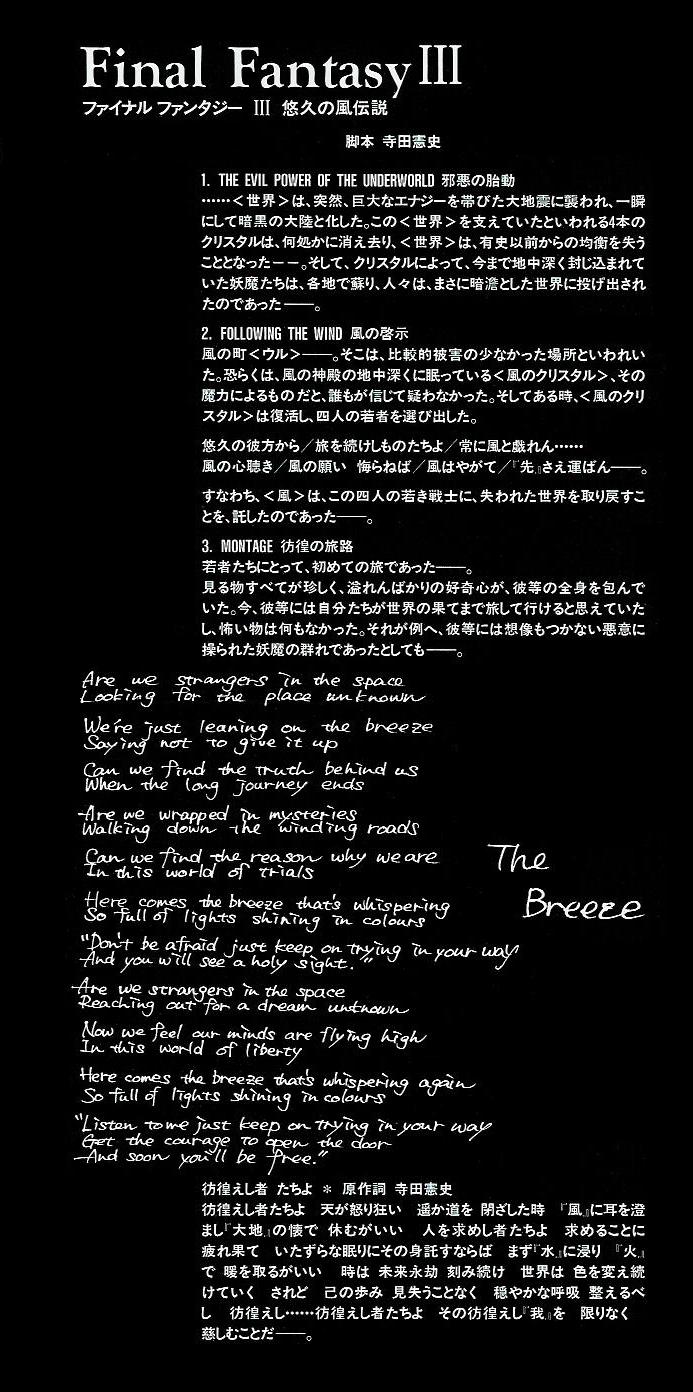 Final Fantasy III
ファイナル ファンタジー III 悠久の風伝説
脚本 寺田憲史
1. THE EVIL POWER OF THE UNDERWORLD 邪悪の胎動
……＜世界＞は、突然、巨大なエナジーを帯びた大地震に襲われ、一瞬
にして暗黒の大陸と化した。この＜世界＞を支えていたといわれる4本の
クリスタルは、何処かに消え去り、＜世界＞は、有史以前からの均衡を失う
こととなったーー。そして、クリスタルによって、今まで地中深く封じ込まれて
いた妖魔たちは、各地で蘇り、人々は、まさに暗澹とした世界に投げ出され
たのであった——。
2. FOLLOWING THE WIND 風の啓示
風の町＜ウル＞——。そこは、比較的被害の少なかった場所といわれい
た。恐らくは、風の神殿の地中深くに眠っている＜風のクリスタル＞、その
魔力によるものだと、誰もが信じて疑わなかった。そしてある時、＜風のクリ
スタル＞は復活し、四人の若者を選び出した。
悠久の彼方から／旅を続けしものたちよ／常に風と戯れん……
風の心聴き／風の願い 悔らねば／風はやがて／『先』さえ運ばん——。
すなわち、＜風＞は、この四人の若き戦士に、失われた世界を取り戻すこ
とを、託したのであった——。
3. MONTAGE 彷徨の旅路
若者たちにとって、初めての旅であった——。
見る物すべてが珍しく、溢れんばかりの好奇心が、彼等の全身を包んで
いた。今、彼等には自分たちが世界の果てまで旅して行けると思えていた
し、怖い物は何もなかった。それが例へ、彼等には想像もつかない悪意に
操られた妖魔の群れであったとしても——。
Are we strangers in the space
Looking for the place unknown
We're just leaning on the breeze
Saying not to give it up
Can we find the truth behind us
When the long journey ends
Are we wrapped in mysteries
Walking down the winding roads
Can we find the reason why we are
In this world of trials
The
Breeze
Here comes the breeze that's whispering
So full of lights shining in colours
"Don't be afraid just keep on trying in your way
And you will see a holy sight."
Are we strangers in the space
Reaching out for a dream unknown
Now we feel our minds are flying high
In this world of liberty
Here comes the breeze that's whispering again
So full of lights shining in colours
"Listen to me just keep on trying in your way
Get the courage to open the door
And soon you'll be free."
彷徨えし者 たちよ ＊ 原作詞 寺田憲史
彷徨えし者たちよ 天が怒り狂い 遥か道を 閉ざした時 『風』に耳を澄
まし『大地』の懐で 休むがいい 人を求めし者たちよ 求めることに
疲れ果て いたずらな眠りにその身託すならば まず『水』に浸り 『火』
で 暖を取るがいい 時は 未来永劫 刻み続け 世界は 色を変え続
けていく されど 己の歩み 見失うことなく 穏やかな呼吸 整えるべ
し 彷徨えし……彷徨えし者たちよ その彷徨えし『我』を 限りなく
慈しむことだ——。